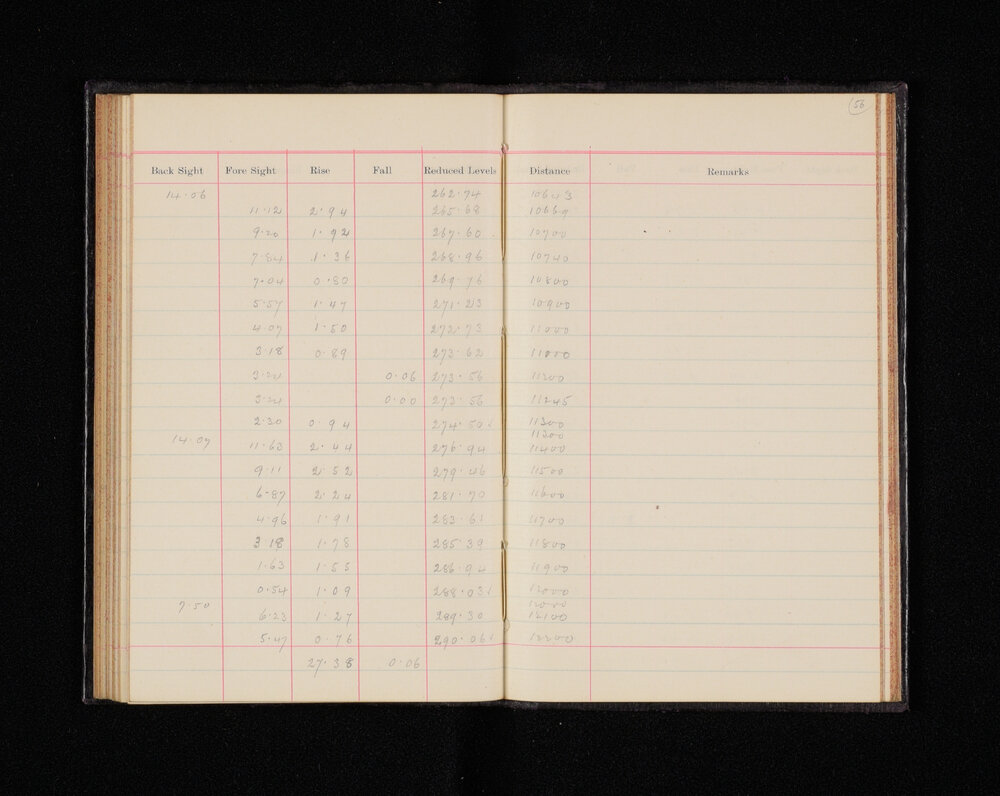 56
Back Sight Fore Sight Rise Fall Reduced Levels Distance Remarks
14.06 262.74 10643
11.12 2.94 265.68 10669
9.20 1.92 267.60 10700
7.84 1.36 268.96 10740
7.04 0.80 269.76 10800
5.57 1.47 271.23 10900
4.07 1.50 272.73 11000
3.18 0.89 273.62
0.06 273.56 11200
0.00 273.56 11245
2.30 0.94 274.50 11300
14.07 11300
11.63 2.44 276.94 11400
9.11 2.52 279.46 11500
6.87 2.24 281.70 11600
4.96 1.91 283.61 11700
3.18 1.78 285.39 11800
1.63 1.55 286.94 11900
0.54 1.09 288.03 12000
7.50 12000
6.23 1.27 289.30 12100
5.47 0.76 290.06 12200
27.38 0.06